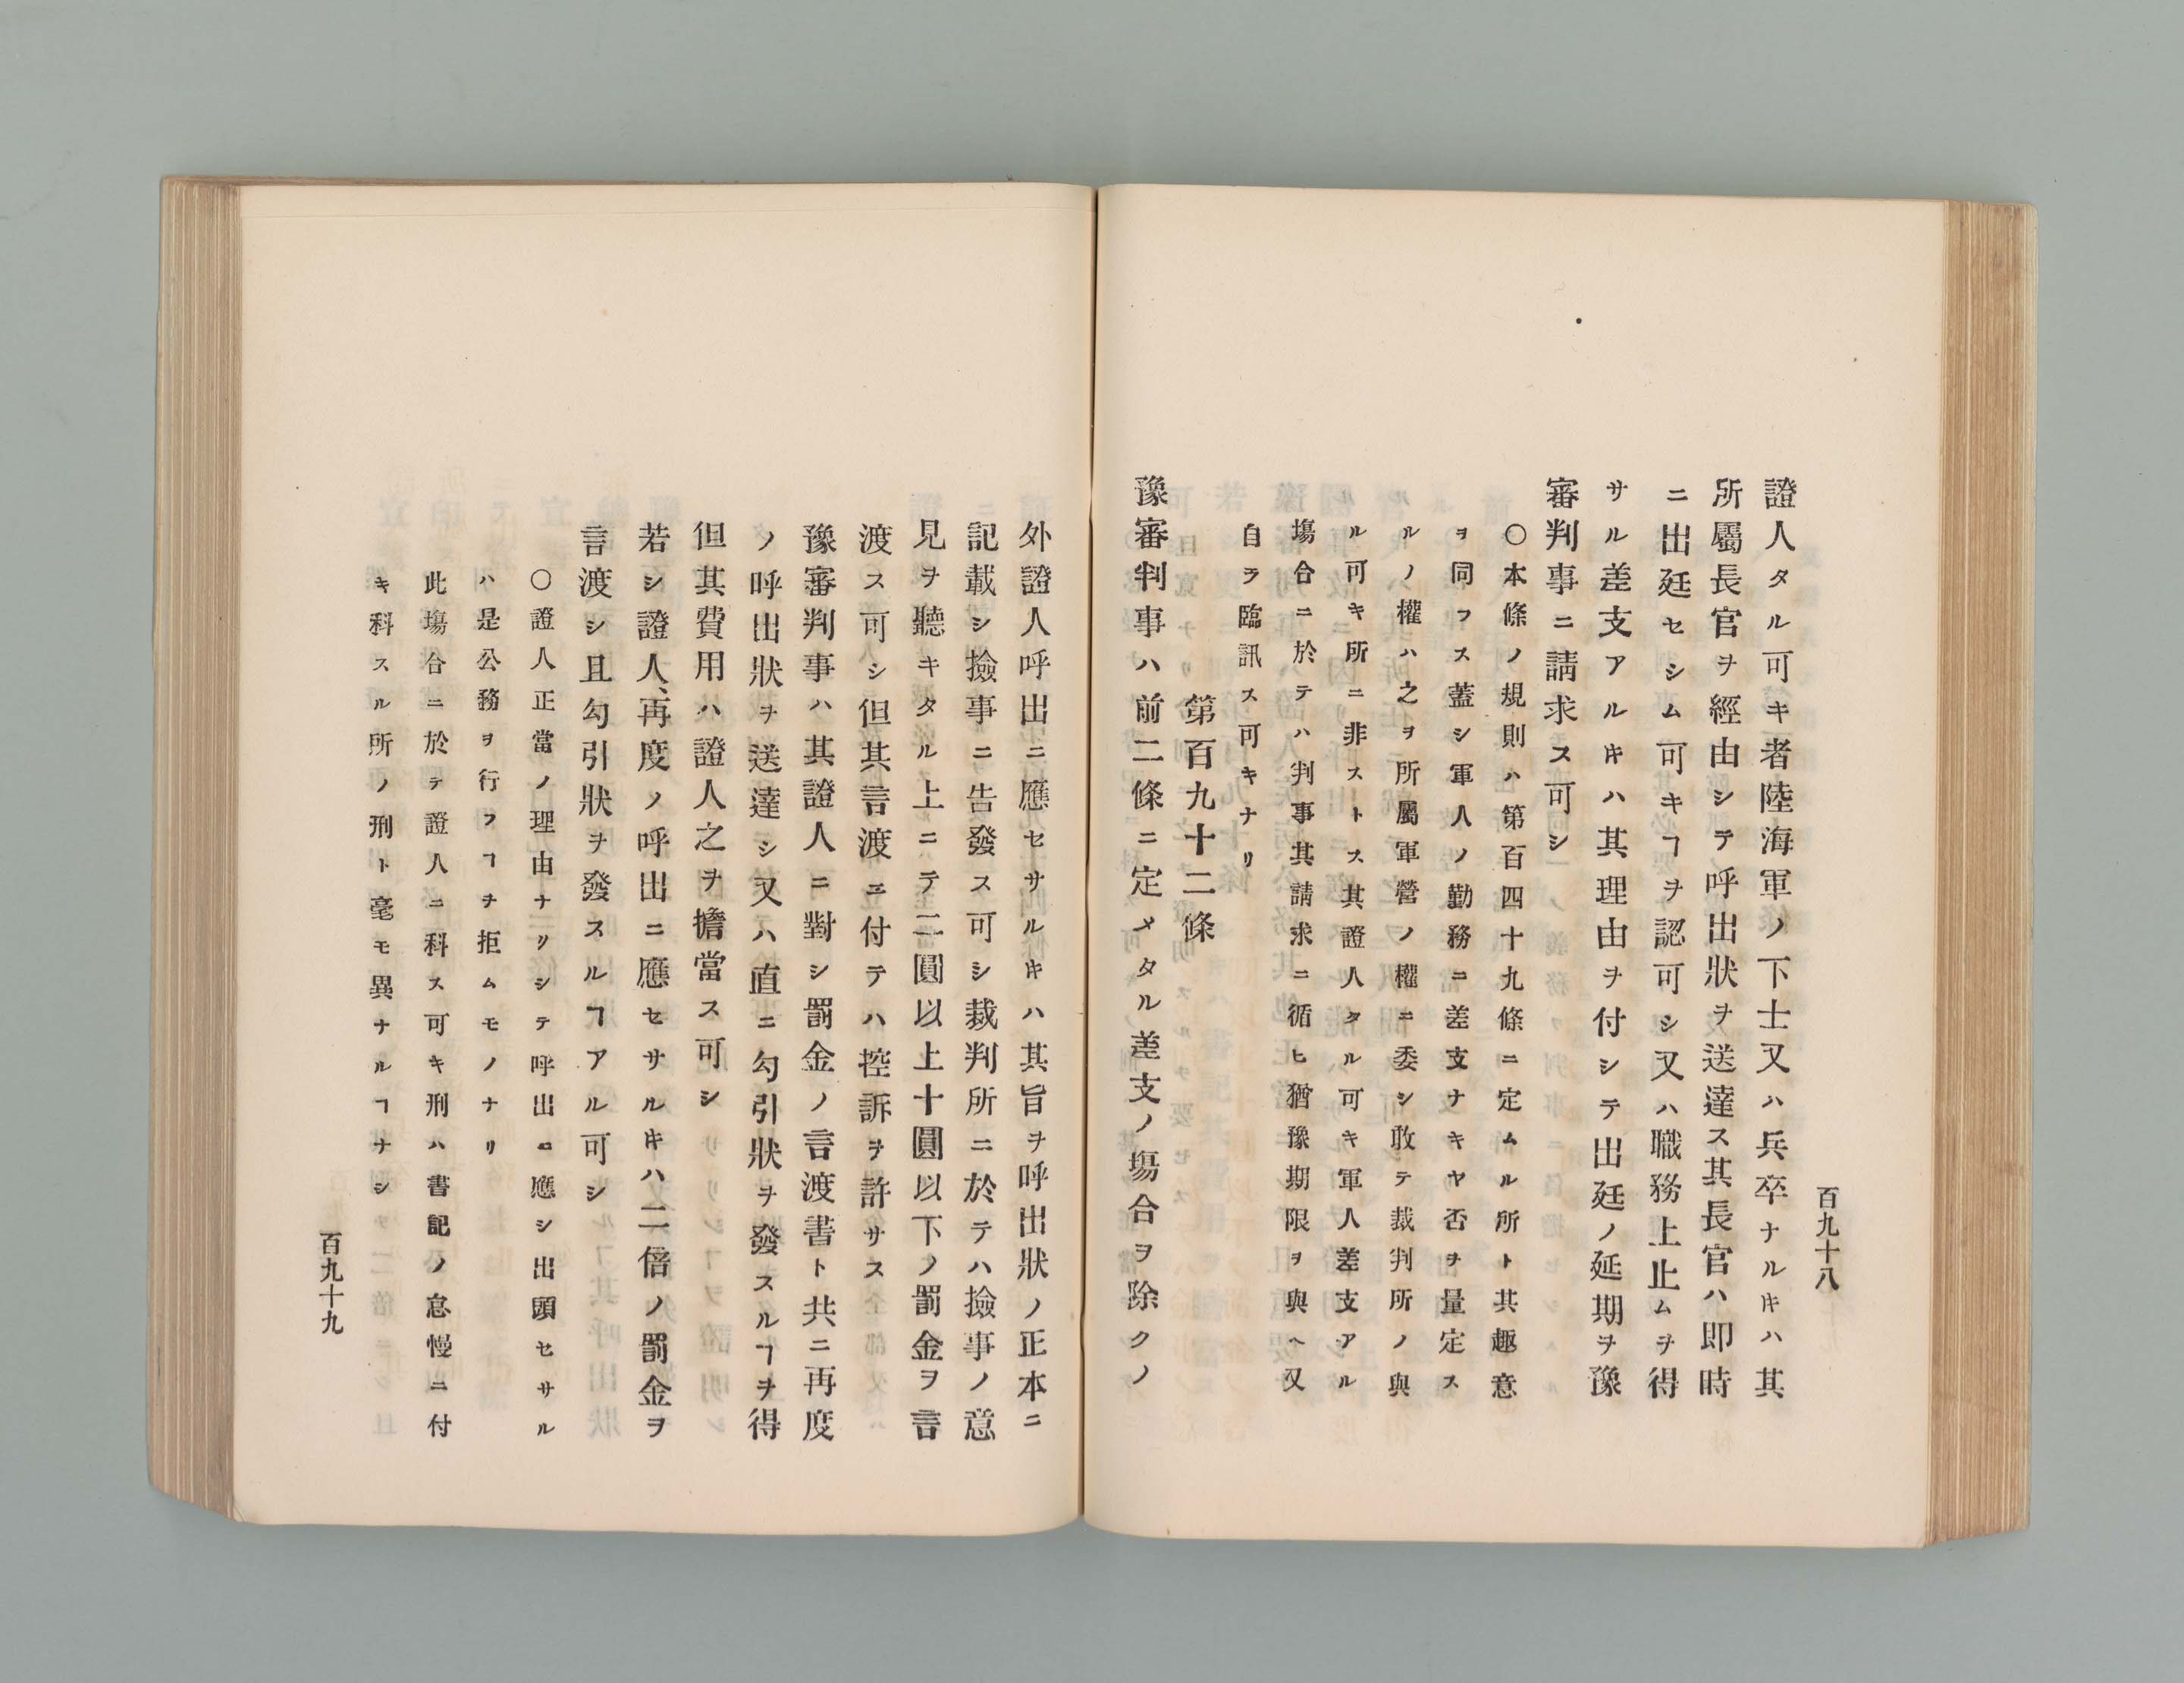 百九十八
證人タル可キ者陸海軍ノ下士又ハ兵卒ナルキハ其
所屬長官ヲ經由シテ呼出狀ヲ送達ス其長官ハ即時
ニ出廷セシム可キヿヲ認可シ又ハ職務上止ムヲ得
サル差支アルキハ其理由ヲ付シテ出廷ノ延期ヲ豫
審判事ニ請求ス可シ
〇本條ノ規則ハ第百四十九條ニ定ムル所ト其趣意
ヲ同フス蓋シ軍人ノ勤務ニ差支ナキヤ否ヲ量定ス
ルノ權ハ之ヲ所屬軍營ノ權ニ委シ敢テ裁判所ノ與
ル可キ所ニ非ストス其證人タル可キ軍人差支アル
塲合ニ於テハ判事其請求ニ循ヒ猶豫期限ヲ與ヘ又
自ラ臨訊ス可キナリ
第百九十二條
豫審判事ハ前二條ニ定メタル差支ノ塲合ヲ除クノ
外證人呼出ニ應セサルキハ其旨ヲ呼出狀ノ正本ニ
記載シ撿事ニ告發ス可シ裁判所ニ於テハ撿事ノ意
見ヲ聽キタル上ニテ二圓以上十圓以下ノ罰金ヲ言
渡ス可シ但其言渡ニ付テハ控訴ヲ許サス
豫審判事ハ其證人ニ對シ罰金ノ言渡書ト共ニ再度
ノ呼出狀ヲ送達シ又ハ直ニ勾引狀ヲ發スルヿヲ得
但其費用ハ證人之ヲ擔當ス可シ
若シ證人、再度ノ呼出ニ應セサルキハ二倍ノ罰金ヲ
言渡シ且勾引狀ヲ發スルヿアル可シ
〇證人正當ノ理由ナリシテ呼出ニ應シ出頭セサル
ハ是公務ヲ行フヿヲ拒ムモノナリ
此塲合ニ於テ證人ニ科ス可キ刑ハ書記ノ怠慢ニ付
キ科スル所ノ刑ト毫モ異ナルヿナシ
百九十九